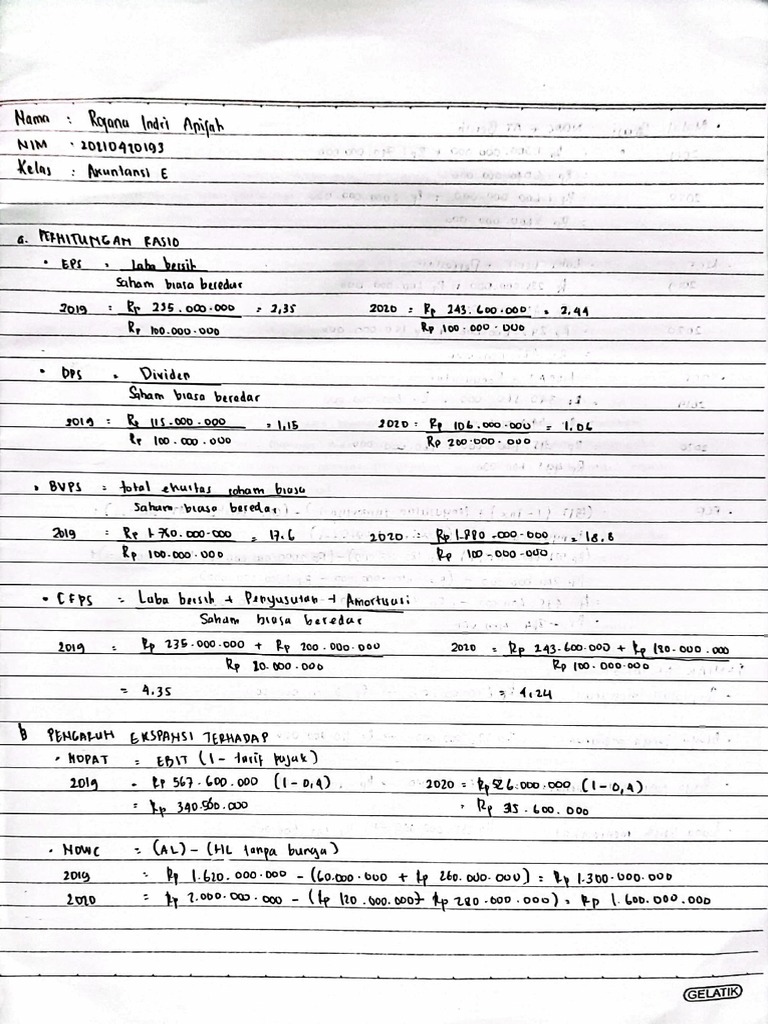 Nama : Rojana Indri Anifah
NIM : 20210420193
Kelas : Akuntansi E
a. PERHITUNGAN RASIO
• EPS = Laba bersih
Saham biasa beredar
2019 = Rp 235.000.000 = 2,35 2020 = Rp 243.600.000 = 2,44
Rp 100.000.000 Rp 100.000.000
• DPS = Dividen
Saham biasa beredar
2019 = Rp 115.000.000 = 1,15 2020 = Rp 106.000.000 = 1,06
Rp 100.000.000 Rp 200.000.000
• BVPS = total ekuitas saham biasa
Saham biasa beredar
2019 = Rp 1.760.000.000 = 17.6 2020 = Rp 1.880.000.000 = 18,8
Rp 100.000.000 Rp 100.000.000
• CFPS = Laba bersih + Penyusutan + Amortisasi
Saham biasa beredar
2019 = Rp 235.000.000 + Rp 200.000.000 2020 = Rp 243.600.000 + Rp 180.000.000
Rp 20.000.000 Rp 100.000.000
= 4,35 = 4,24
b PENGARUH EKSPANSI TERHADAP
• NOPAT = EBIT (1 - tarif pajak)
2019 = Rp 567.600.000 (1-0,4) 2020 = Rp 526.000.000 (1-0,4)
= Rp 340.560.000 = Rp 315.600.000
• NOWC = (AL) - (HL tanpa bunga)
2019 = Rp 1.620.000.000 - (60.000.000 + Rp 260.000.000) = Rp 1.300.000.000
2020 = Rp 2.000.000.000 - (Rp 120.000.000 + Rp 280.000.000) = Rp 1.600.000.000
GELATIK